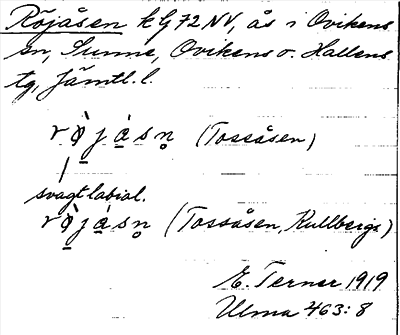 Röjåsen k G72 NV, ås i Ovikens
sn, Sunne, Ovikens o. Hallens
tg, Jämtl. l.
rø̀jásn̥ (Tossåsen)
svagt labial.
rø̀jásn̥ (Tossåsen, Kullbergs)
E. Terner 1919
Ulma 463:8